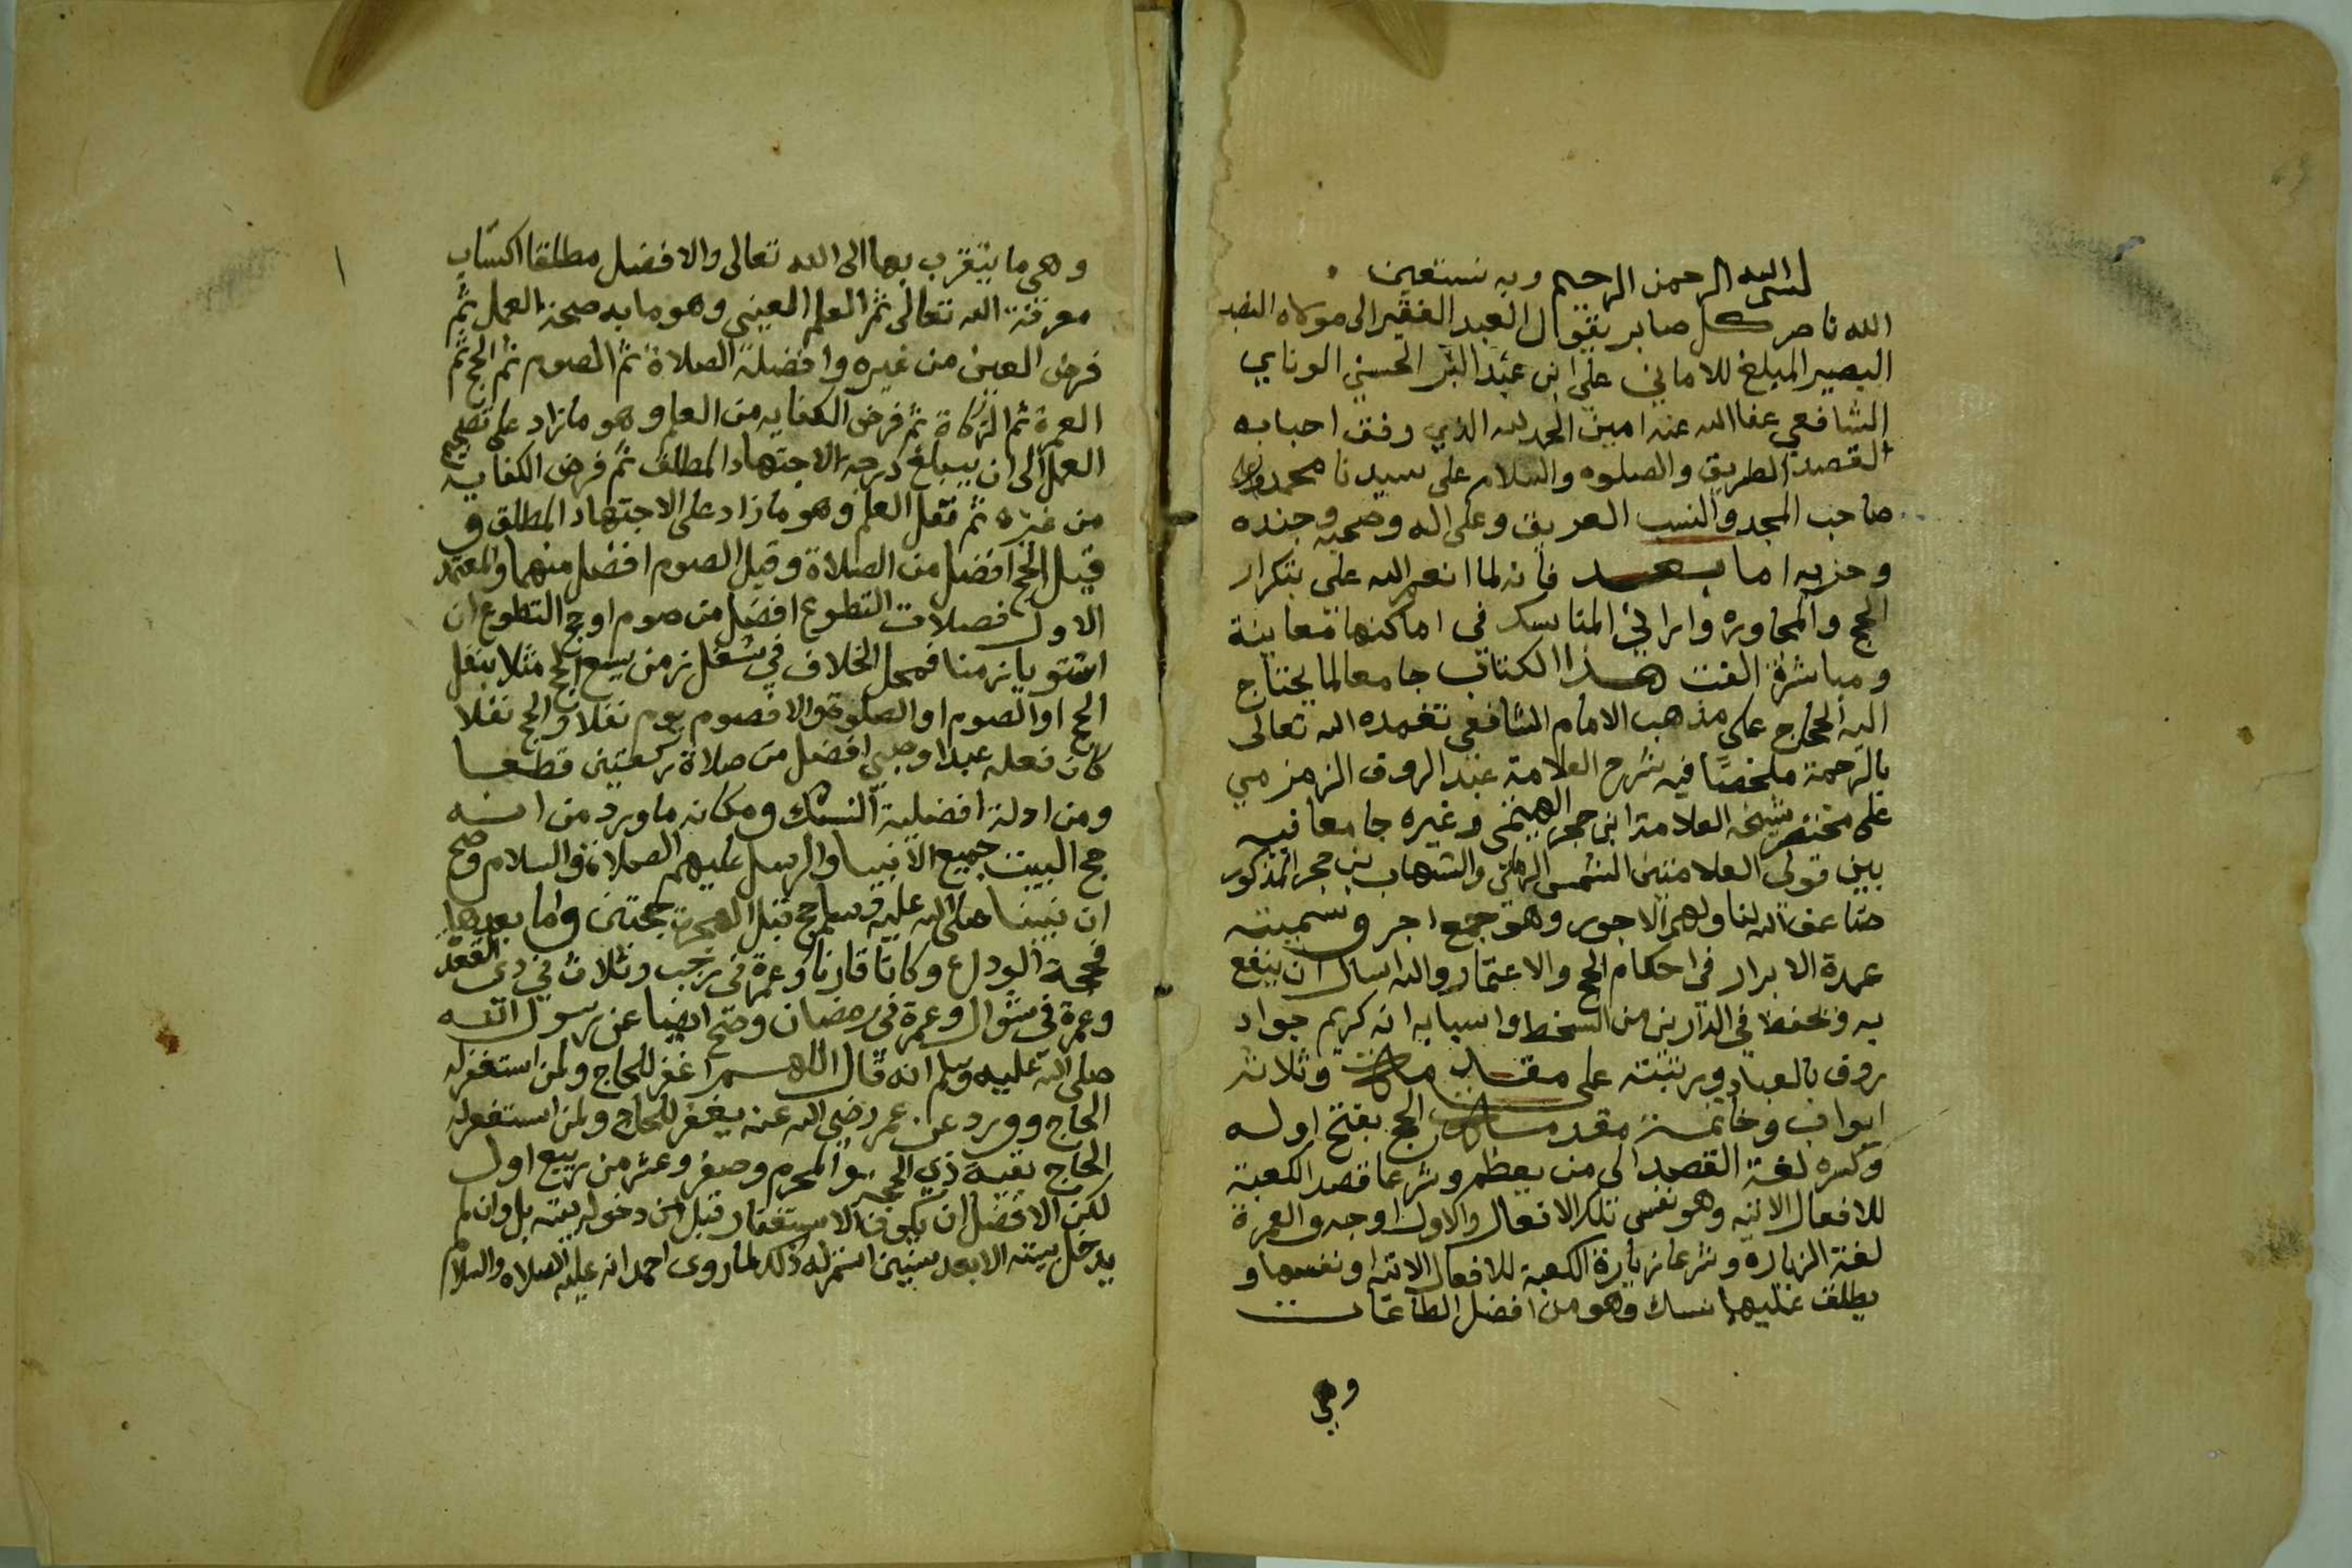 بسم الله الرحمن الرحيم وبه نستعين
الله ناصر كل صابر يقول العبد الفقير الى مولاه
البصير المبلغ للاماني على ابن عبد البر الحسني الوناي
الشافعي عفا الله عنه امين الحمد لله الذي وفق احبابه
لقصد الطريق والصلوه والسلام على سيدنا محمد
صاحب المجد والنسب العريق وعلى اله وصحبه وجنده
وحزبه اما بعد فانه لما انعم الله على بتكرار
الحج والمجاوره وارانى المناسك في اماكنها معاينة
ومباشرة الفت هذا الكتاب جامعا لما يحتاج
اليه الحاج على مذهب الامام الشافعي تغمده الله تعالى
بالرحمة ملخصا فيه شرح العلامة عبد الروف الزمزمي
على مختصر شيخه العلامة ابن حجر الهيتمى وغيره جامعا فيه
بين قولى العلامتين الشمس الرملي والشهاب بن حجر المذكور
ضاعف الله لنا ولهم الاجور وهو جمع اجر وسميته
عمدة الابرار في احكام الحج والاعتمار والله اسال ان ينفع
به ويحفظ في الدارين من السخط واسبابه انه كريم جواد
روف بالعباد ورتبته على مقدمات وثلاثة
ابواب وخاتمة مقدمات الحج بفتح اوله
وكسره لغة القصد الى من يعظم وشرعا قصد الكعبة
للافعال الاتيه وهو نفس تلك الافعال والاول اوجه والعمرة
لغة الزياره وشرعا زيارة الكعبة للافعال الاتية او نفسها و
يطلق عليها نسك وهو من افضل الطاعات
وهي
وهي ما يتقرب بها الى الله تعالى والافضل مطلقا اكتساب
معرفة الله تعالى ثم العلم العيني وهو ما به صحة العمل ثم
فرض العين من غيره وافضله الصلاة ثم الصوم ثم الحج ثم
العمرة ثم الزكاة ثم فرض الكفايه من العلم وهو ما زاد على تصحيح
العمل الى ان يبلغ درجة الاجتهاد المطلق ثم فرض الكفاية
من غيره ثم نفل العلم وهو ما زاد على الاجتهاد المطلق و
قيل الحج افضل من الصلاة وقيل الصوم افضل منهما والمعتمد
الاول فصلات التطوع افضل من صوم او حج التطوع ان
استويا زمنا فمحل الخلاف في شغل زمن يسع الحج مثلا بنفل
الحج او الصوم او الصلوة والا فصوم يوم نفلا والحج نفلا
كان فعله عبد او صبي افضل من صلاة ركعتين قطعا
ومن ادلة افضلية النسك ومكانه ما ورد من انه
حج البيت جميع الانبيا والرسل عليهم الصلاة والسلام وصح
ان نبينا صلى الله عليه وسلم حج قبل الهجرة حجتين واما بعدها
فحجة الوداع وكانا قارنا وعمرة في رجب وثلاث في ذي القعدة
وعمرة في شوال وعمرة في رمضان وصح ايضا عن رسول الله
صلى الله عليه وسلم انه قال اللهم اغفر للحاج ولمن استغفر له
الحاج وورد عن عمر رضي الله عنه يغفر للحاج ولمن استغفر له
الحاج بقية ذي الحجة والمحرم وصفر وعشر من ربيع اول
لكن الافضل ان يكون الاستغفار قبل من دخوله بيته بل وان لم
يدخل بيته الا بعد سنين استمر له ذلك لما روى احمد انه عليه الصلاه والسلام